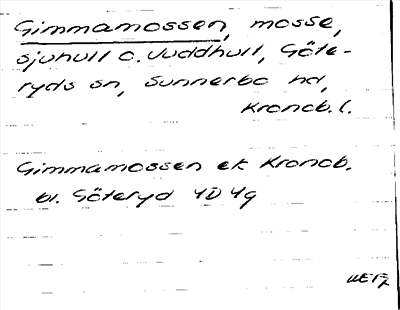 Gimmamossen, mosse,
Sjuhult o. Juddhult, Göte-
ryds sn, Sunnerbo hd,
Kronob. l.
Gimmamossen ek Kronob.
bl. Göteryd 4D 4g